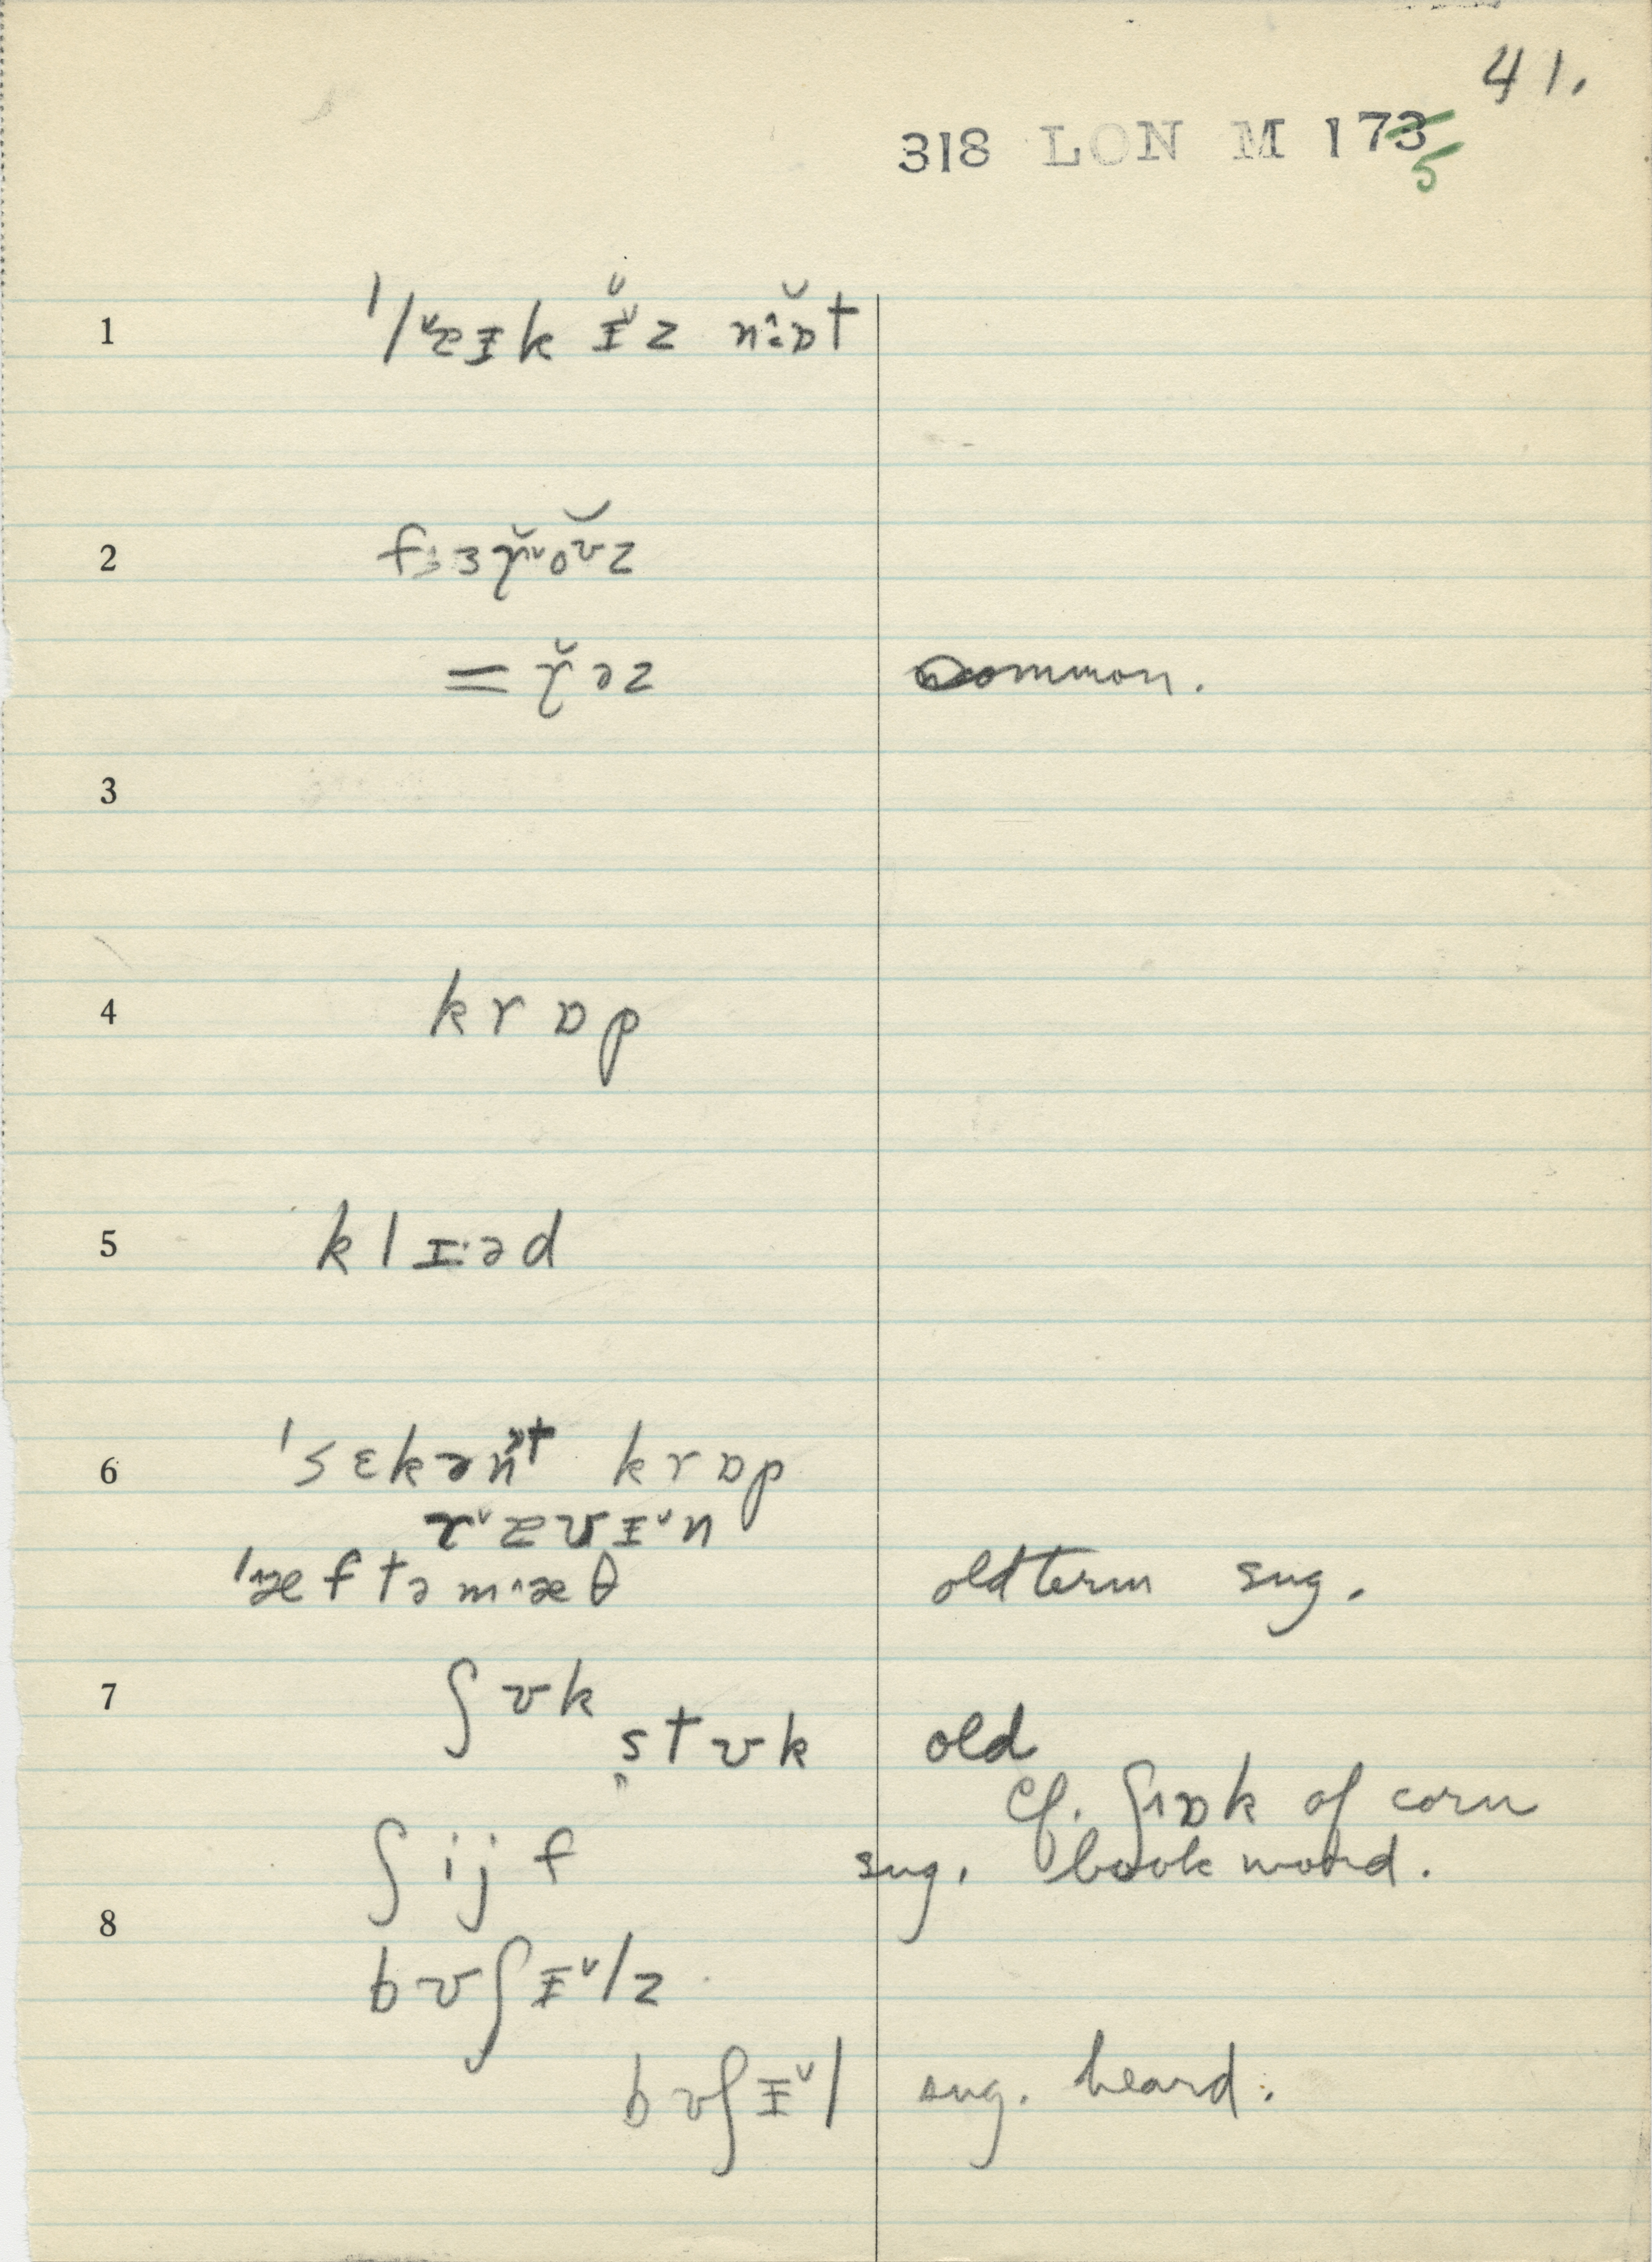 41.
318 LON M 173
5
1 ˈlᵛæɪk ɪ̆ᵛz nːɒ̆t
2 fɜɤ̆ᵛoʊ̆z
= ɤ̆əz common.
3
4 krɒp
5 klɪ·əd
6 ˈsɛkənᵊt krɒp
rᵛævɪᵛn
ˈæftəm˄æθ old term sug.
7 ʃʊk
s̭tʊk old
cf. ʃ˄ɒk of corn
ʃijf sug. book word.
8
bʊʃɪᵛlz
bʊʃɪᵛl sug. heard.